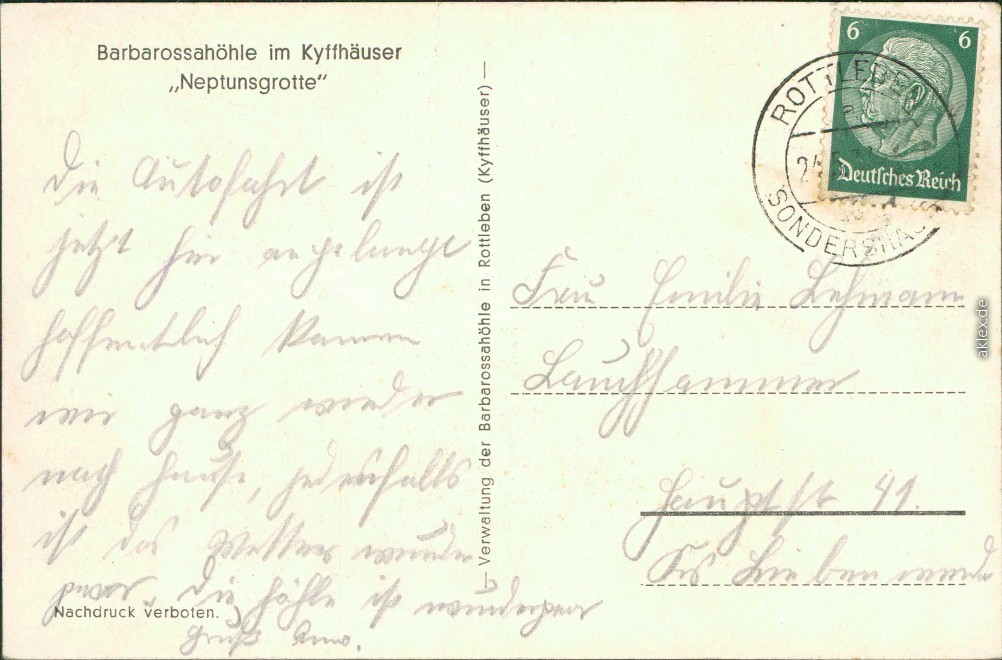 Barbarossahöhle im Kyffhäuser
„Neptunsgrotte"
Die Autofahrt ist
jetzt hier angelangt
hoffentlich kommen
wir ganz wieder
nach Hause, jedenfalls
ist das Wetter wunder
Die Höhle ist
Gruß
Nachdruck verboten.
— Verwaltung der Barbarossahöhle in Rottleben (Kyffhäuser) —
6 6
Deutsches Reich
ROTTLEBEN
SONDERSHAU
Frau Emilie Lehmann
Lauchhammer
Hauptstr 41.
aklex.de